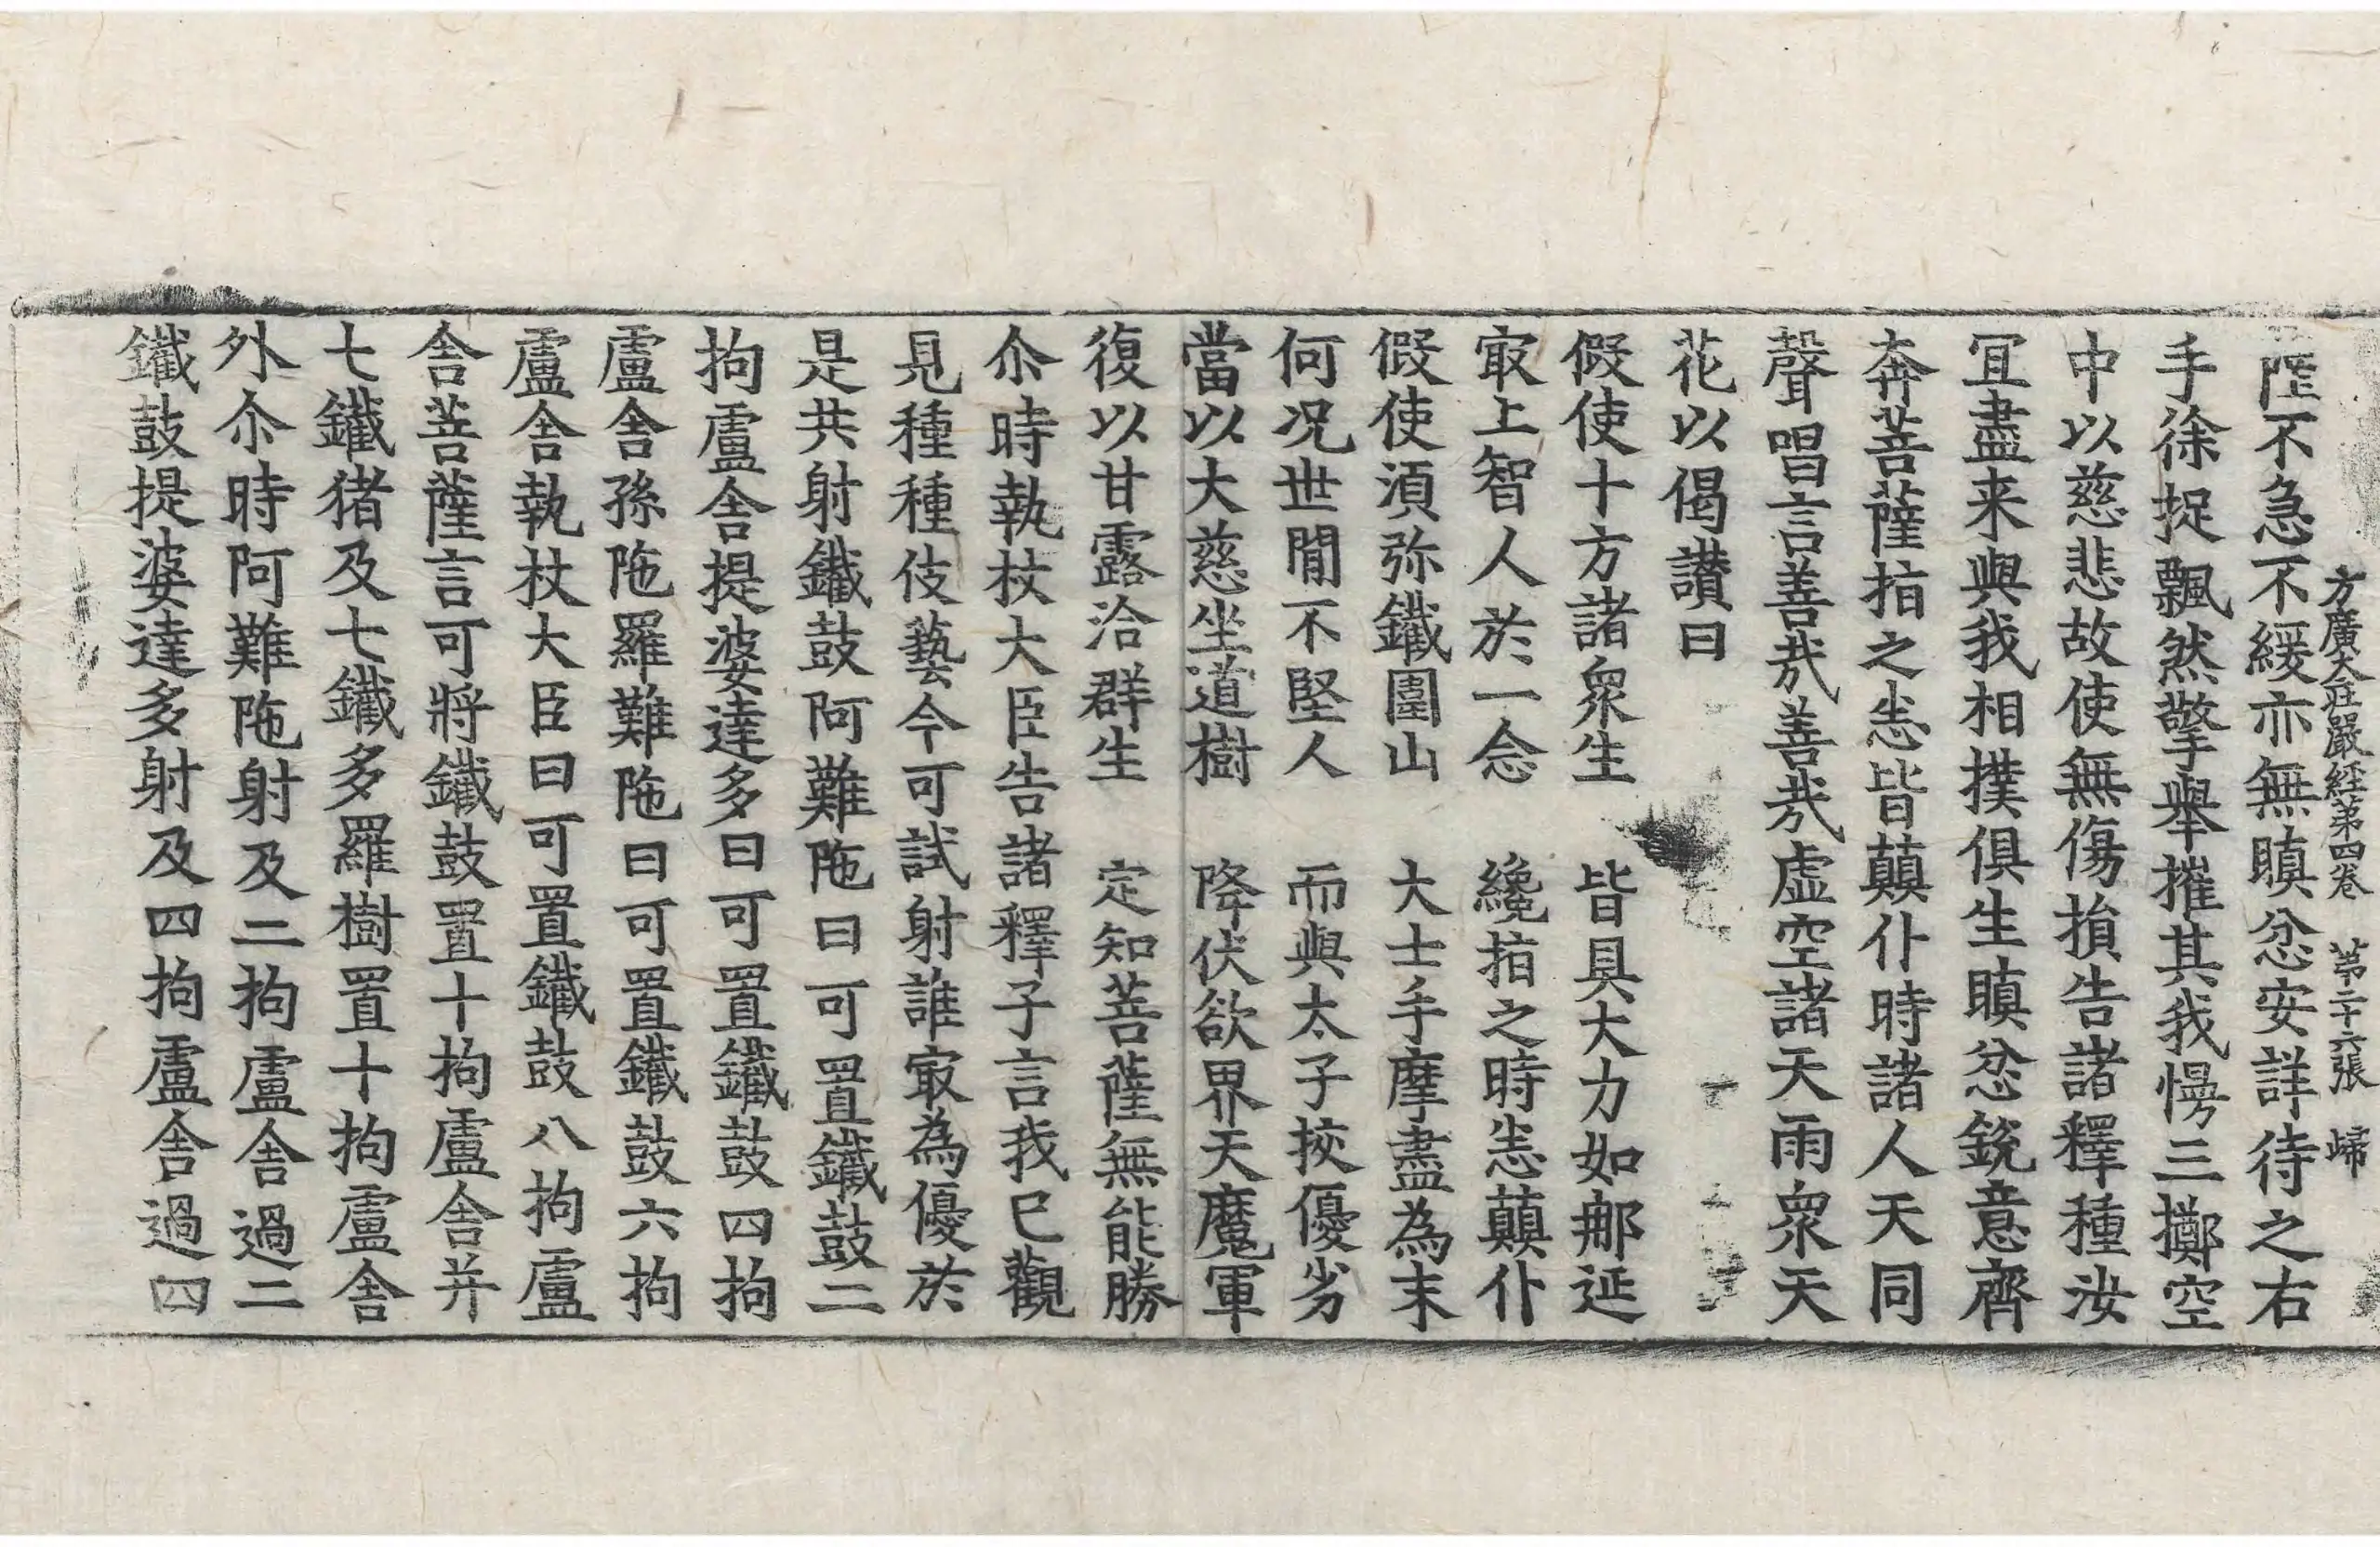 方廣大莊嚴經第四卷 第二十六張 歸
薩不急不緩亦無瞋忿安詳待之右
手徐捉飄然擎擧摧其我慢三擲空
中以慈悲故使無傷損告諸釋種汝
宜盡来與我相撲俱生瞋忿銳意齊
奔菩薩指之悉皆顚仆時諸人天同
聲唱言善㦲善㦲虛空諸天雨衆天
花以偈讃曰
假使十方諸衆生 皆具大力如郍延
㝡上智人於一念 纔指之時悉顚仆
假使湏弥鐵圍山 大士手摩盡為末
何况世間不堅人 而與太子挍優劣
當以大慈坐道樹 降伏欲界天魔軍
復以甘露洽群生 定知菩薩無能勝
尒時執杖大臣告諸釋子言我已觀
見種種伎藝今可試射誰㝡為優於
是共射鐵鼓阿難陁曰可置鐵鼓二
拘盧舎提婆達多曰可置鐵鼓四拘
盧舎孫陁羅難陁曰可置鐵鼓六拘
盧舎執杖大臣曰可置鐵鼓八拘盧
舎菩薩言可將鐵鼓置十拘盧舎并
七鐵猪及七鐵多羅樹置十拘盧舎
外尒時阿難陁射及二拘盧舎過二
鐵鼓提婆達多射及四拘盧舎過四